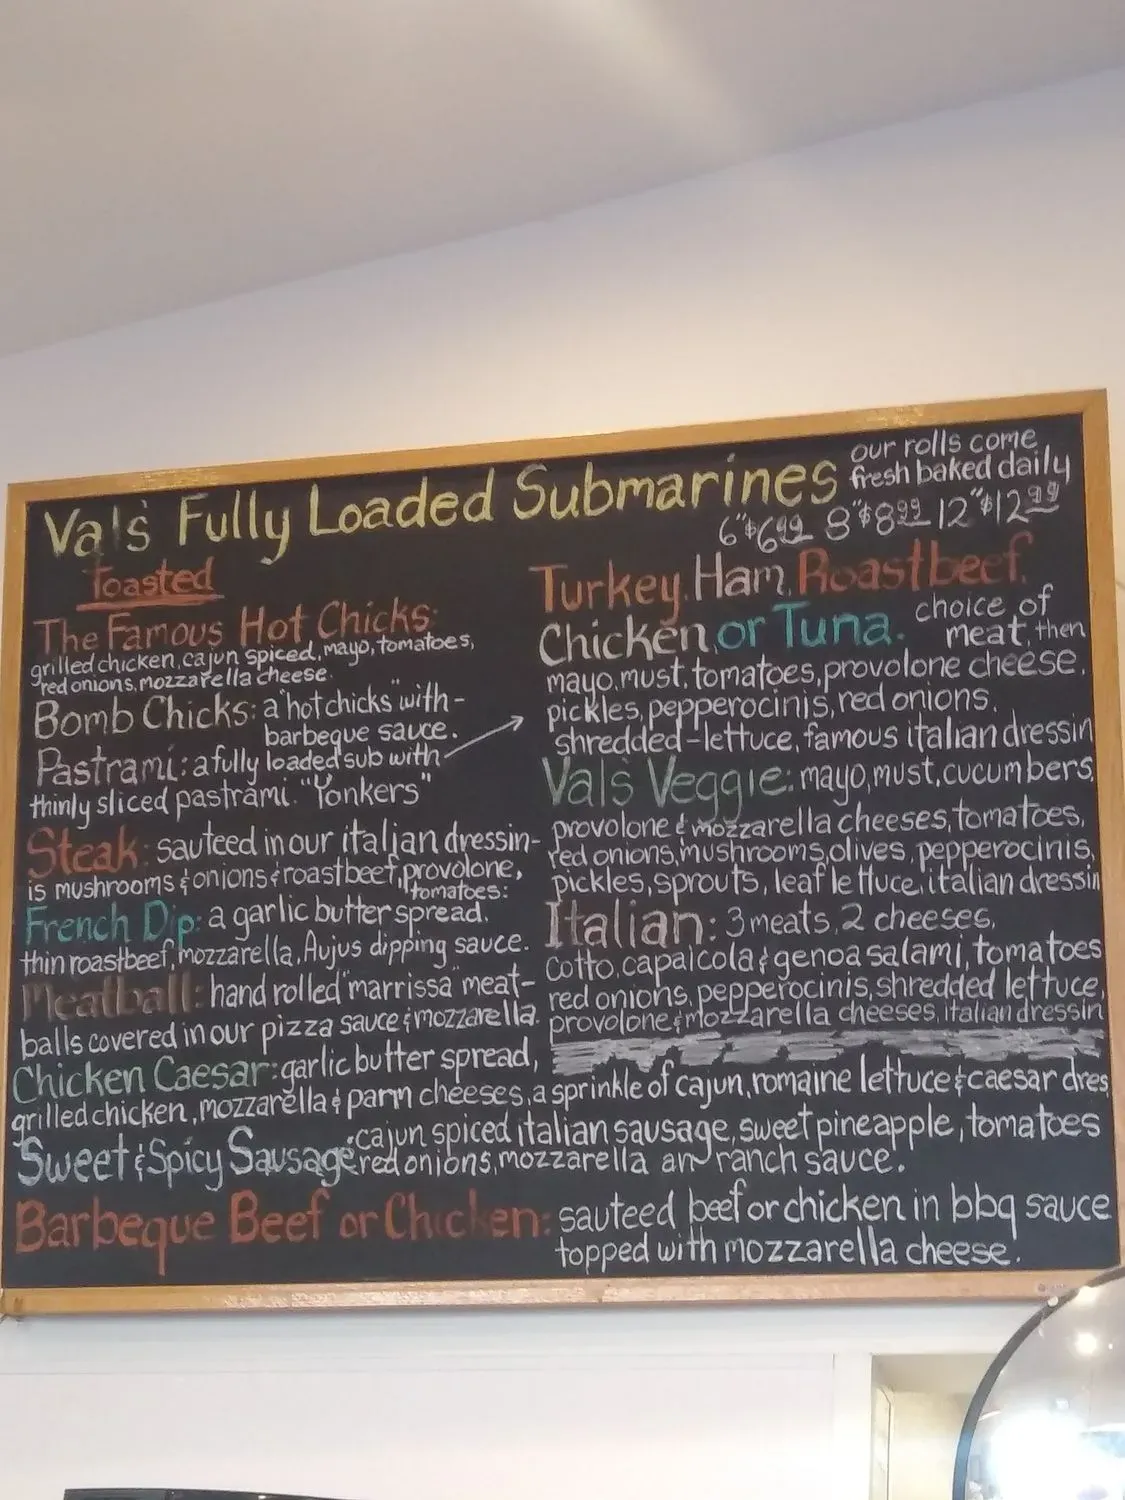 Val's Fully Loaded Submarines
our rolls come
fresh baked daily
6" $6.99 8" $8.99 12" $12.99
Toasted
The Famous Hot Chicks:
grilled chicken, cajun spiced, mayo, tomatoes,
red onions, mozzarella cheese.
Bomb Chicks: a "hot chicks" with -
barbeque sauce.
Pastrami: a fully loaded sub with
thinly sliced pastrami. "Yonkers"
Steak: sauteed in our italian dressin-
is mushrooms & onions & roastbeef, provolone,
tomatoes:
French Dip: a garlic butter spread.
thin roastbeef, mozzarella, Aujus dipping sauce.
Meatball: hand rolled "marrissa" meat-
balls covered in our pizza sauce & mozzarella.
Chicken Caesar: garlic butter spread,
grilled chicken, mozzarella & parm cheeses, a sprinkle of cajun, romaine lettuce & caesar dres
Sweet & Spicy Sausage: cajun spiced italian sausage, sweet pineapple, tomatoes
red onions, mozzarella an ranch sauce.
Barbeque Beef or Chicken: sauteed beef or chicken in bbq sauce
topped with mozzarella cheese.
Turkey, Ham, Roastbeef,
Chicken, or Tuna. choice of
meat, then
mayo, must, tomatoes, provolone cheese,
pickles, pepperocinis, red onions,
shredded-lettuce, famous italian dressin
Val's Veggie: mayo, must, cucumbers,
provolone & mozzarella cheeses, tomatoes,
red onions, mushrooms, olives, pepperocinis,
pickles, sprouts, leaf lettuce, italian dressin
Italian: 3 meats, 2 cheeses,
Cotto, capalcola & genoa salami, tomatoes
red onions, pepperocinis, shredded lettuce,
provolone & mozzarella cheeses, italian dressin